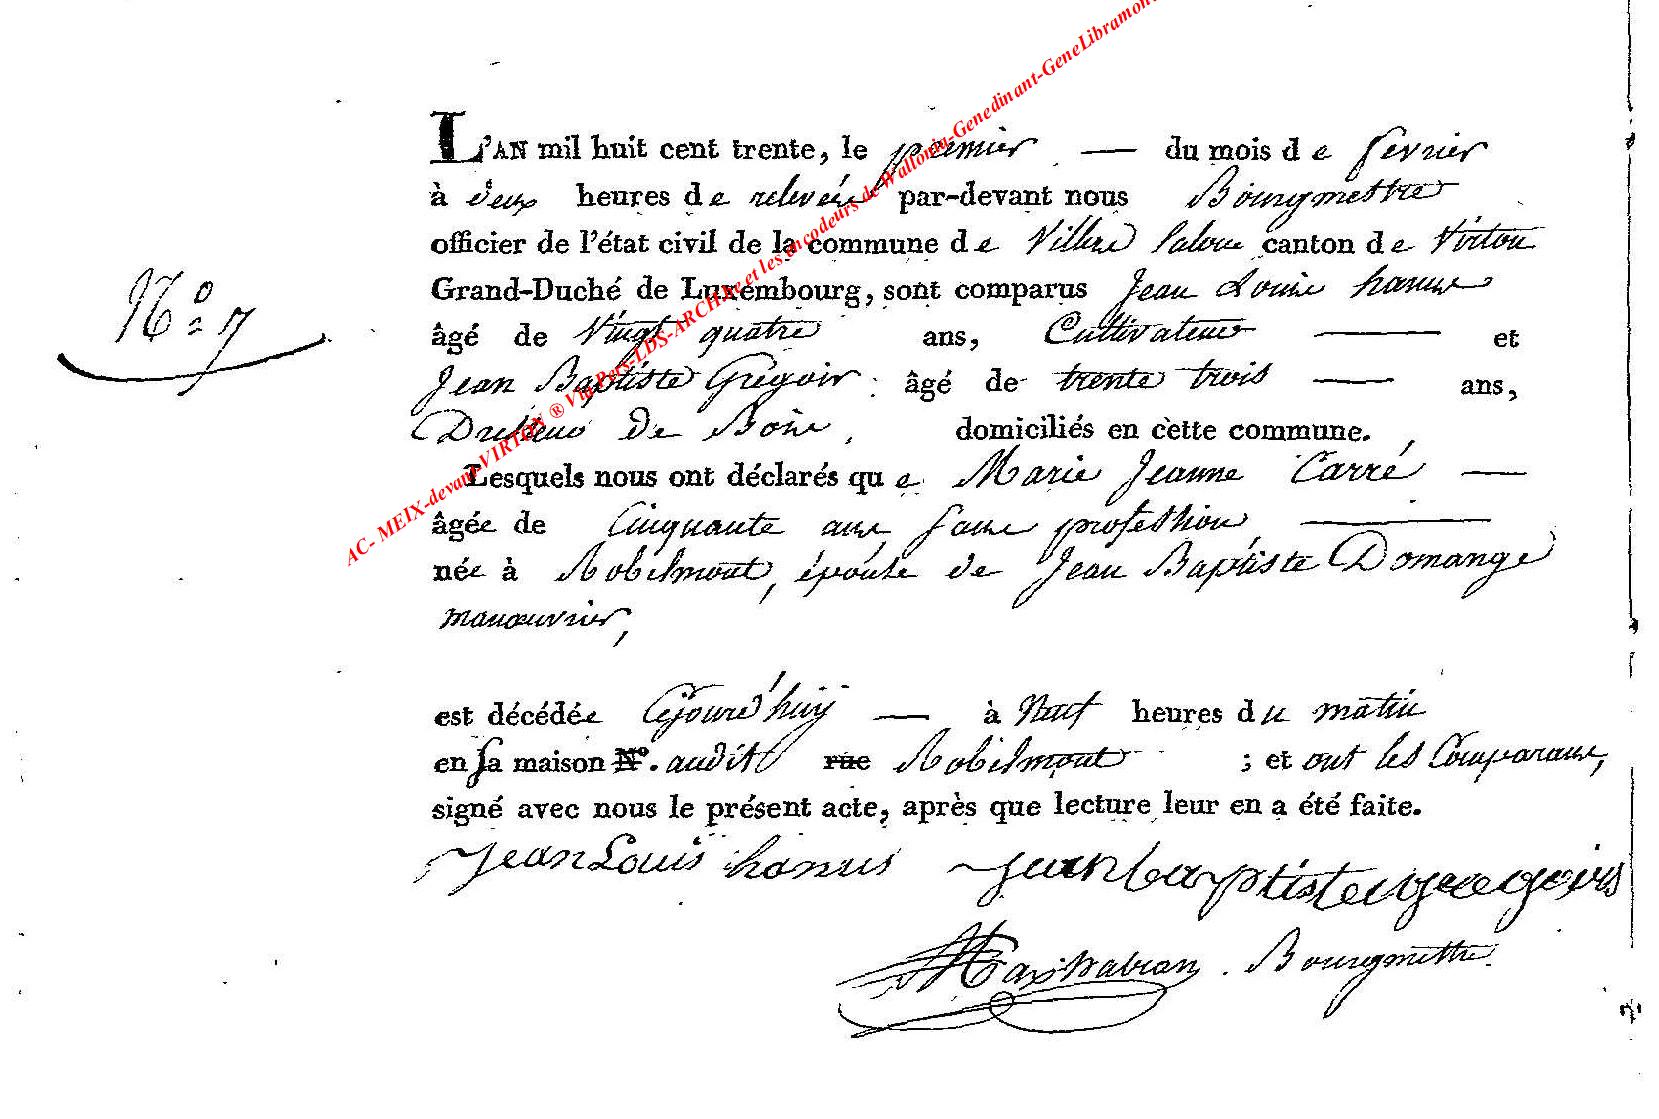 L'AN mil huit cent trente, le premier — du mois de fevrier
à deux heures de relevée par-devant nous Bourgmestre
officier de l'état civil de la commune de Villers Laloue canton de Virton
Grand-Duché de Luxembourg, sont comparus Jean Louis hanus
N° 7
âgé de Vingt quatre ans, Cultivateur — et
Jean Baptiste Grégoir âgé de trente trois — ans,
de Bois, domiciliés en cette commune.
Lesquels nous ont déclarés que Marie Jeanne Carré —
âgée de Cinquante ans sans profession —
née à Robelmont, épouse de Jean Baptiste Domange
manœuvrier,
est décédée Cejourd'huy — à Neuf heures du matin
en sa maison N°. audit rue Robelmont ; et ont les Comparans,
signé avec nous le présent acte, après que lecture leur en a été faite.
Jean Louis hanus Jean baptiste gregoirs
Bourgmestre.
AC- MEIX-devant-VIRTON ® Via Pers-LDS-ARCH.be et les encodeurs de Wallonia-Genedinant-GeneLibramont